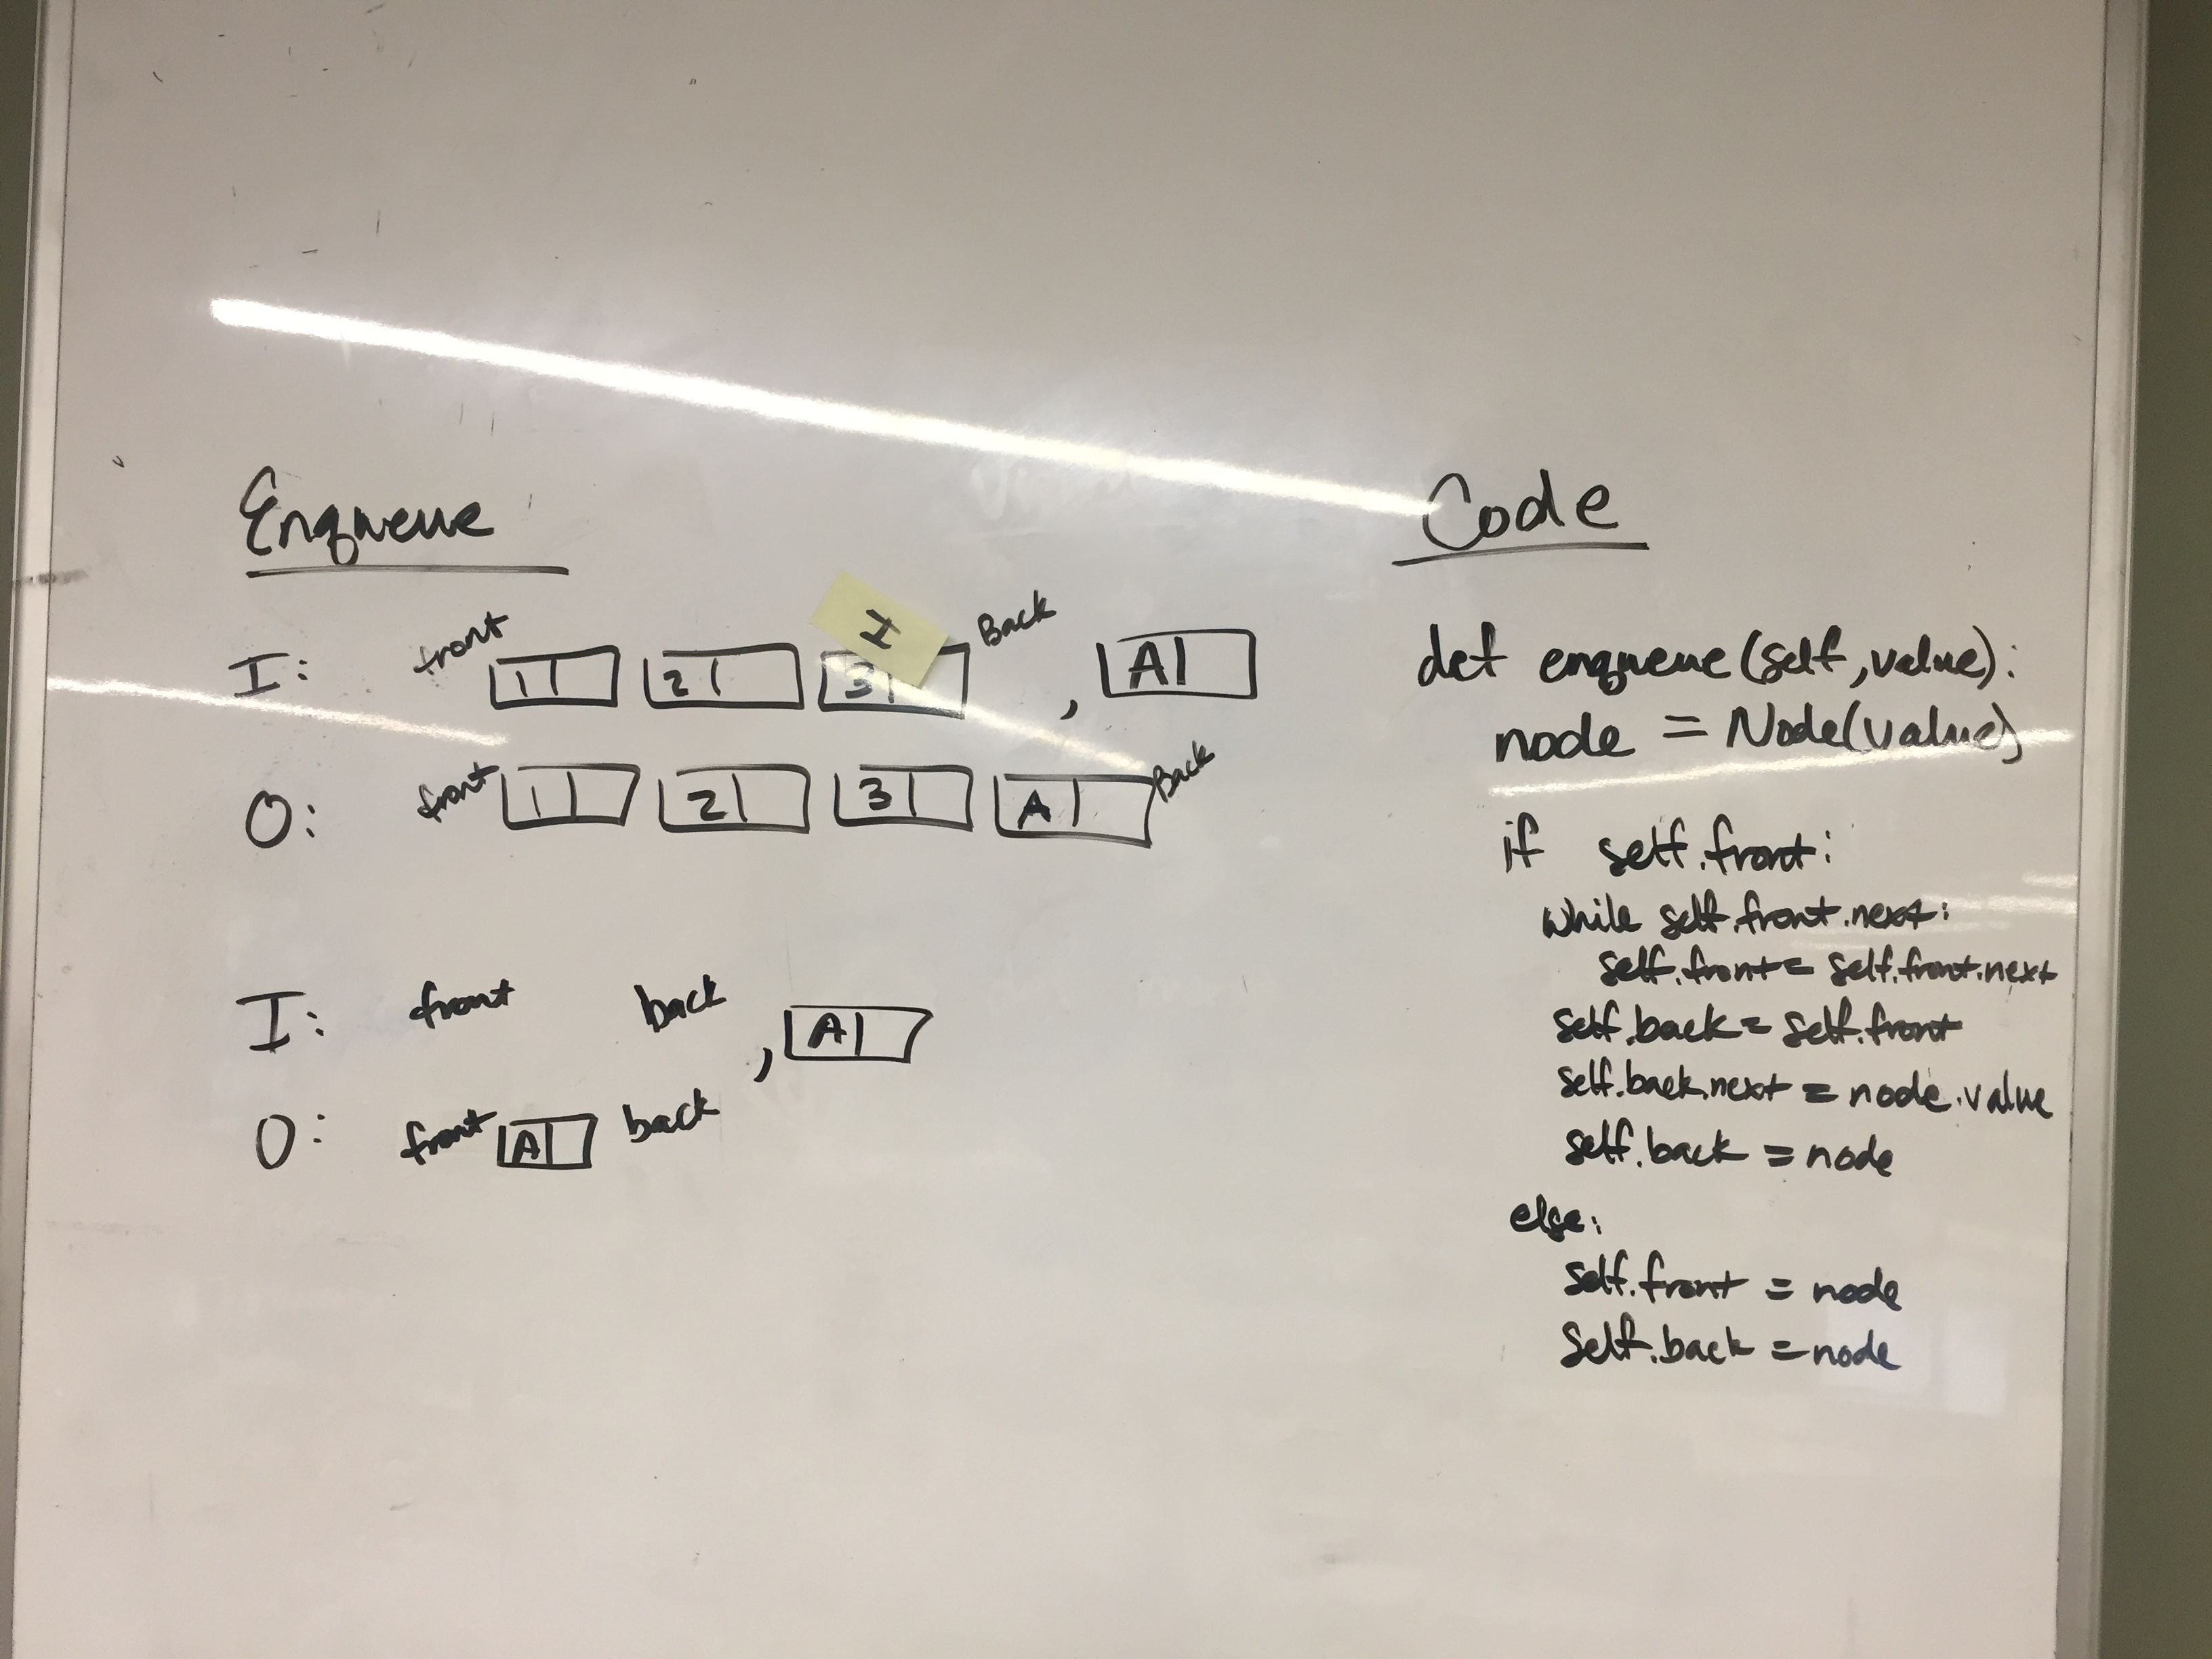 Enqueue
I: front 1 2 3 Back , A
I
O: front 1 2 3 A Back
I: front back , A
O: front A back
Code
def enqueue(self,value):
node = Node(value)
if self.front:
while self.front.next:
self.front = self.front.next
self.back = self.front
self.back.next = node.value
self.back = node
else:
self.front = node
self.back = node